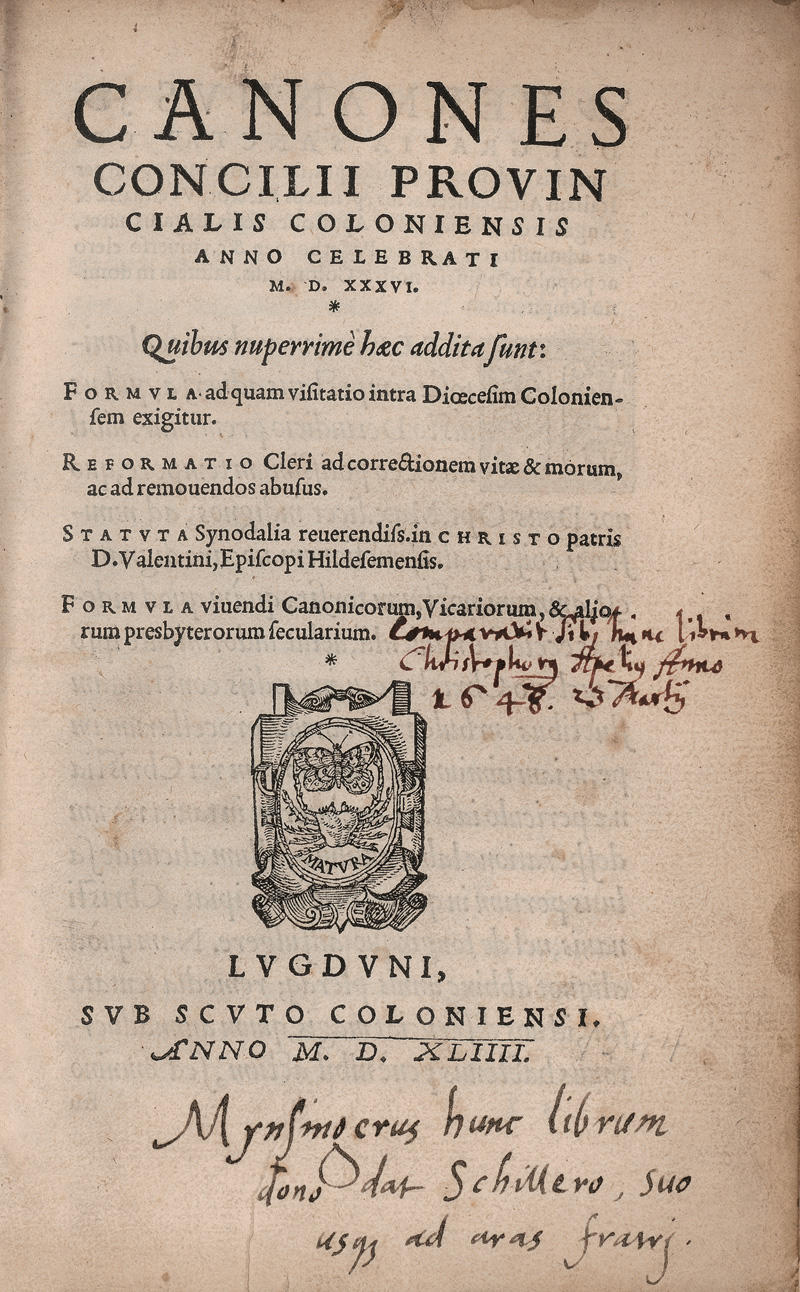 CANONES
CONCILII PROVIN
CIALIS COLONIENSIS
ANNO CELEBRATI
M. D. XXXVI.
*
Quibus nuperrimè hæc addita ſunt:
FORMVLA ad quam viſitatio intra Diœceſim Colonien-
ſem exigitur.
REFORMATIO Cleri ad correctionem vitæ & morum,
ac ad remouendos abuſus.
STATVTA Synodalia reuerendiſs. in CHRISTO patris
D. Valentini, Epiſcopi Hildeſemenſis.
FORMVLA viuendi Canonicorum, Vicariorum, & alio-
rum presbyterorum ſecularium. Comparavit sibi hunc librum
*
Christophorus Anno
1648. Martij
MATVRA
LVGDVNI,
SVB SCVTO COLONIENSI.
ANNO M. D. XLIIII.
Mynſingerus hunc librum
dono dat Schillero, suo
usq; ad aras